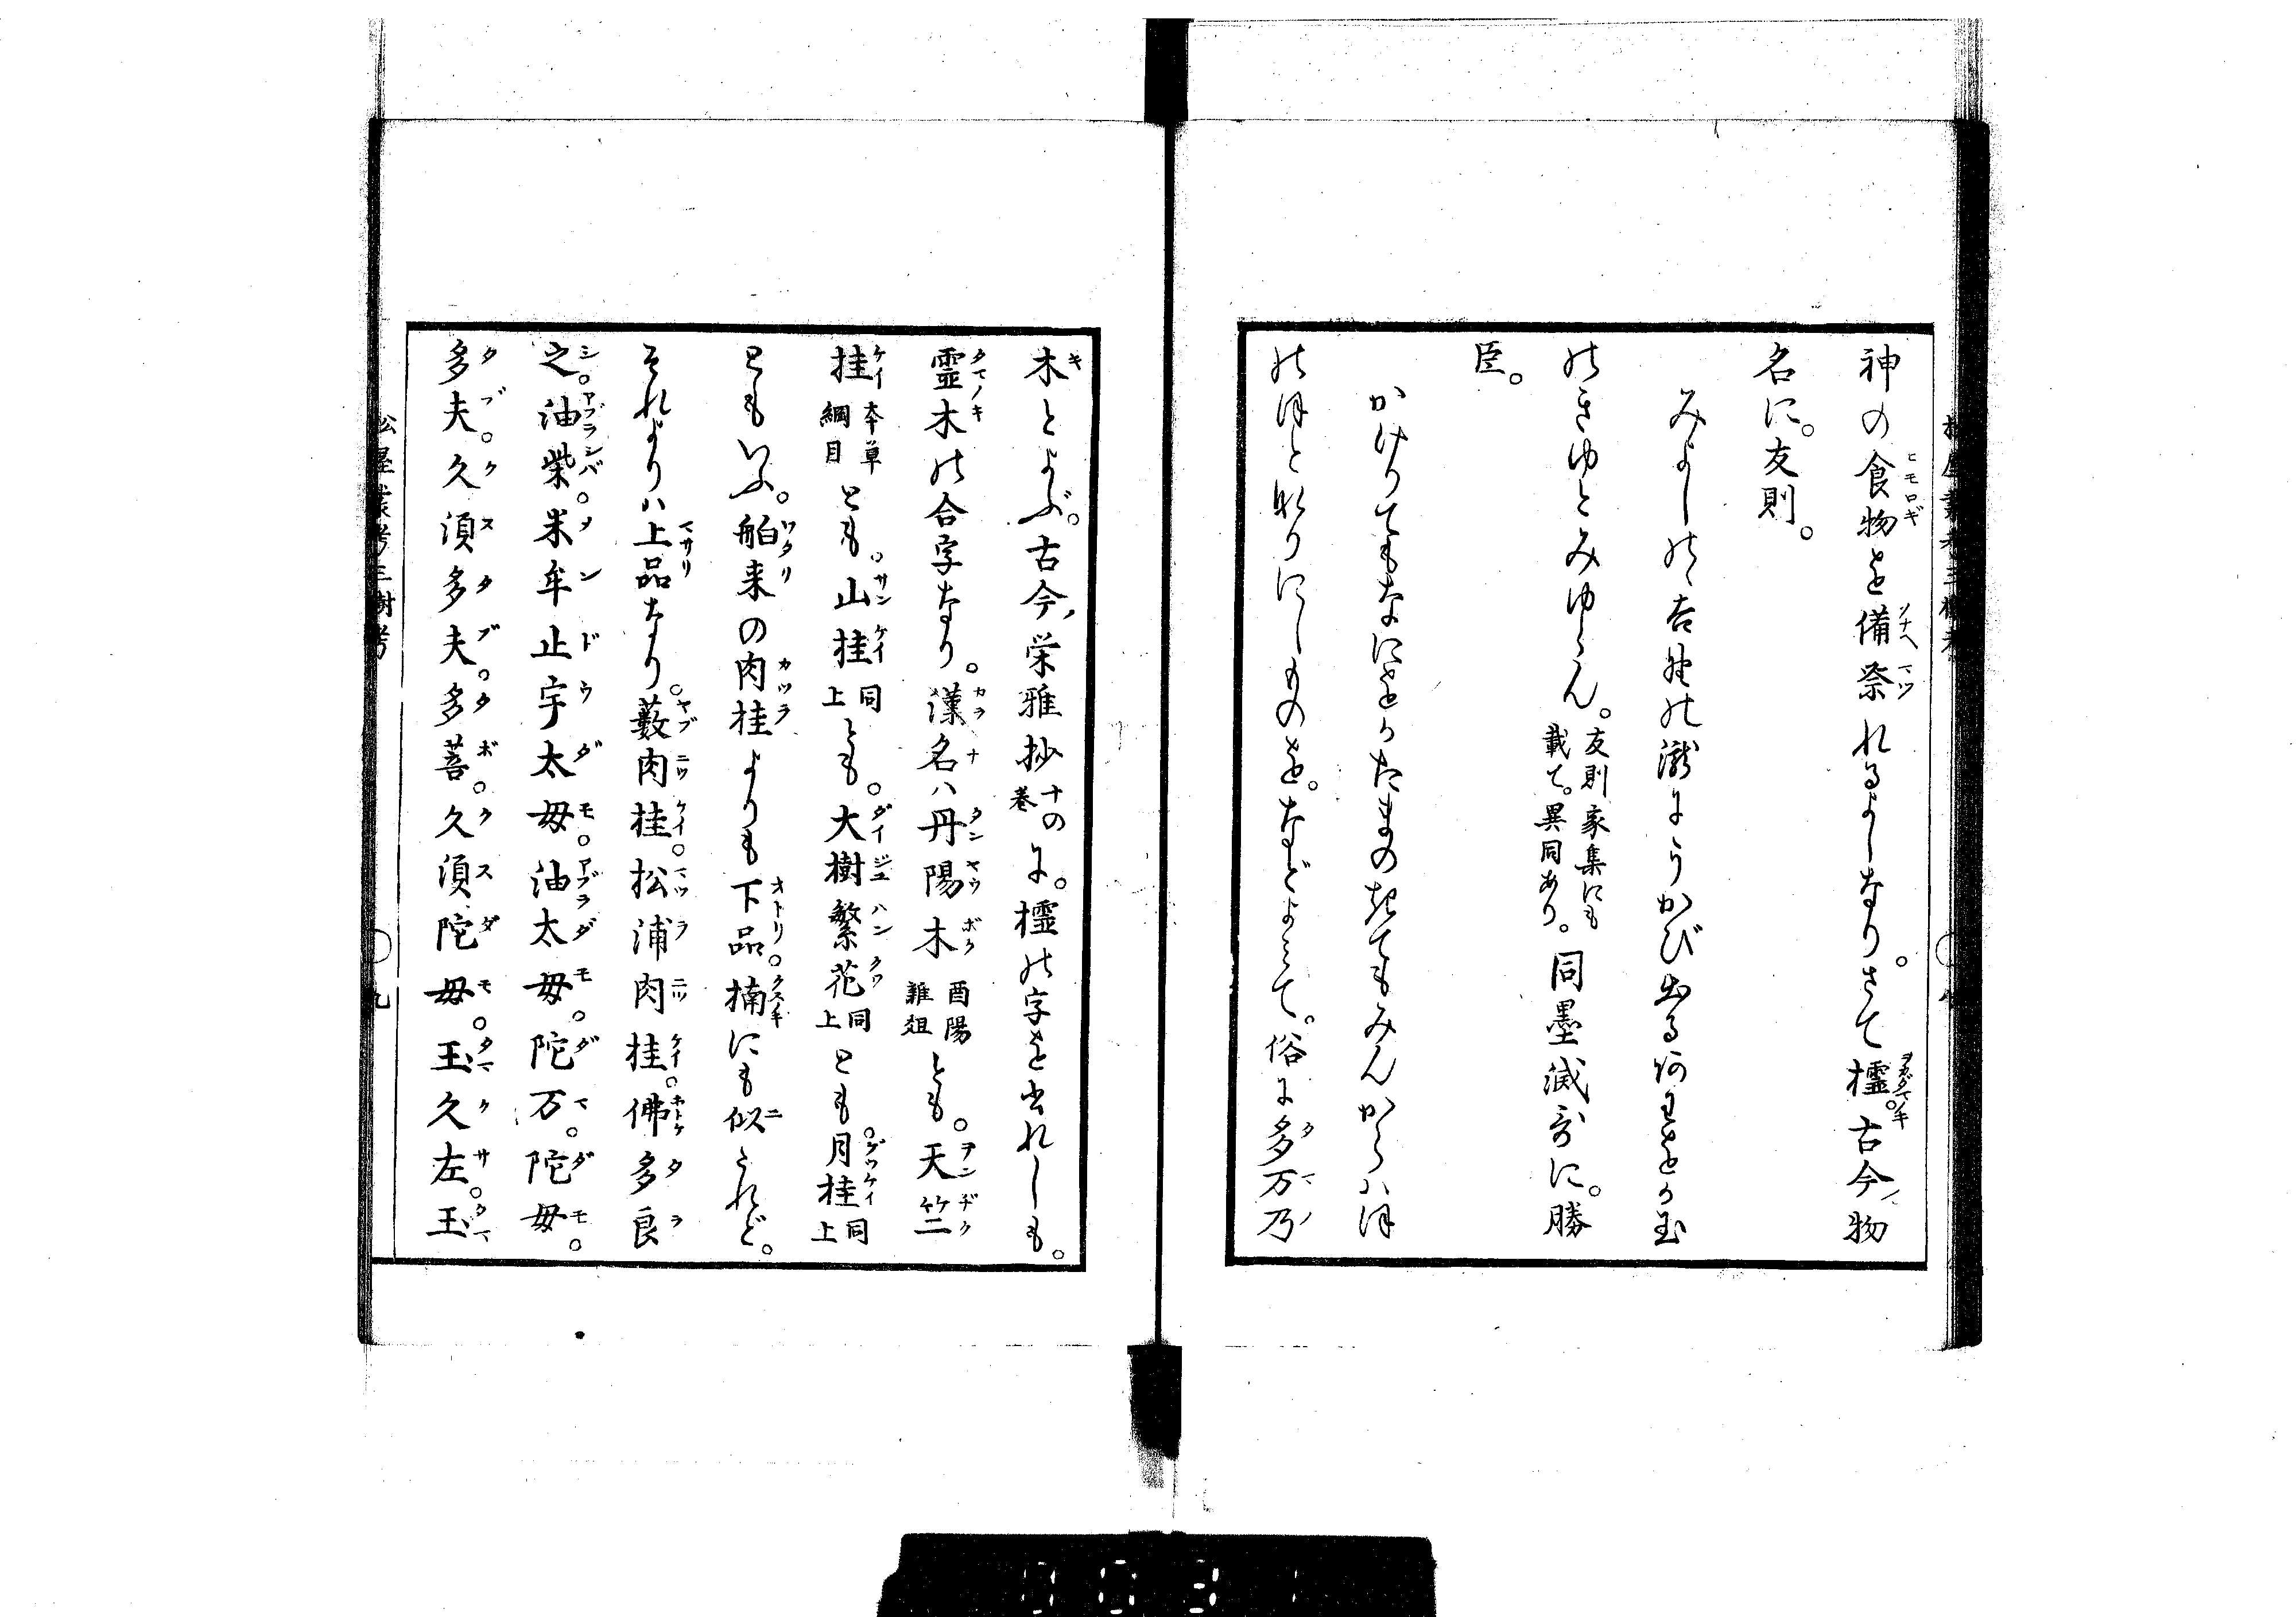 神の食物を備祭れるよしなり。さて櫺。古今物
名に。友則。
みよしのゝ吉野の瀧にうかび出るあわをか玉
のきゆとみゆらん。友則家集にも載て。異同あり。同墨滅哥に。勝
臣。
かけりてもなにをかたまの来てもみんからハほ
のほと成りにしものを。などよミて。俗に多万乃
木とよぶ。古今ノ栄雅抄十の巻に。櫺の字を出れしも。
霊木の合字なり。漢名ハ丹陽木酉陽雑俎とも。天竺
桂本草綱目とも。山桂同上とも。大樹繁花同上とも。月桂同上
ともいふ。舶来の肉桂よりも下品。楠にも似たれど。
それよりハ上品なり。薮肉桂。松浦肉桂。佛多良
之。油柴。米牟止宇太毋。油太毋。陀万。陀毋。
多夫。久須多夫。多菩。久須陀毋。玉久左。玉
松屋叢考三樹考
九